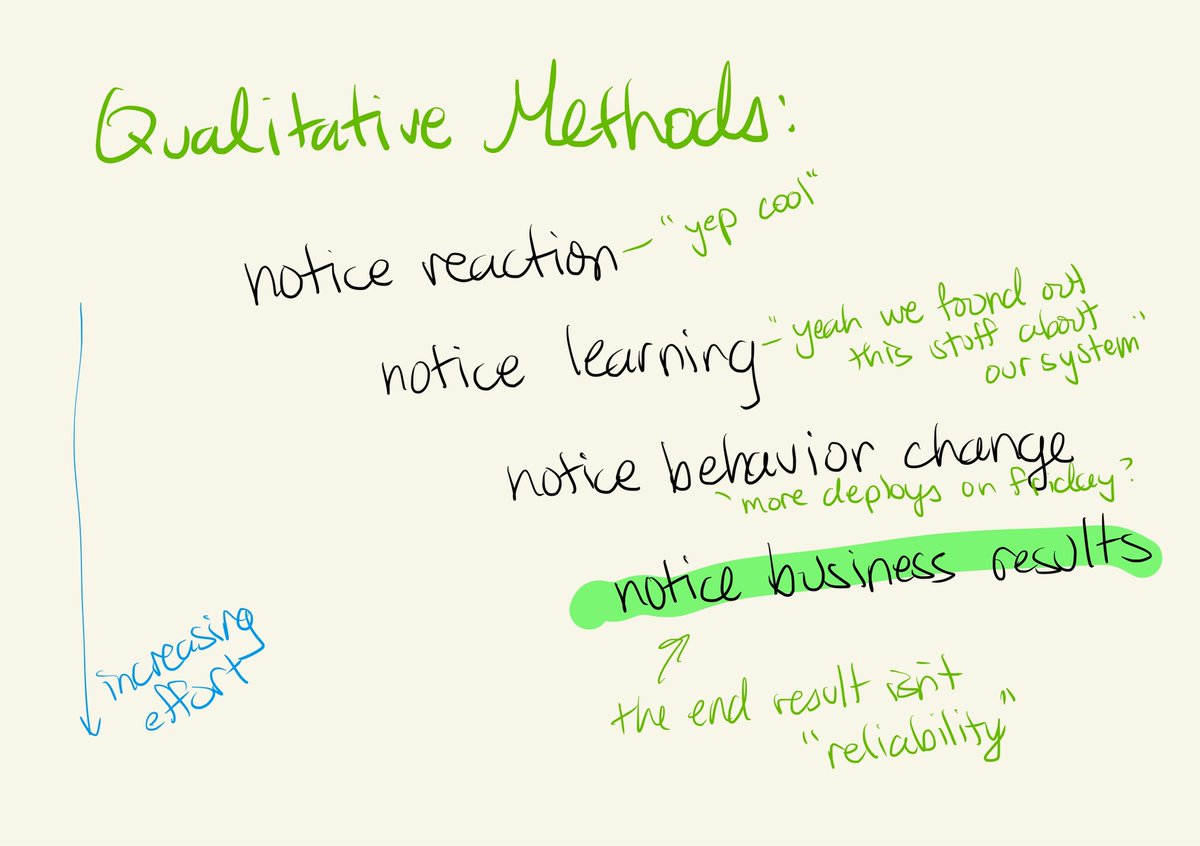 Qualitative Methods:
notice reaction - "yep cool"
notice learning - "yeah we found out
this stuff about
our system"
notice behavior change
"more deploys on friday?
notice business results
the end result isn't
"reliability"
increasing
effort